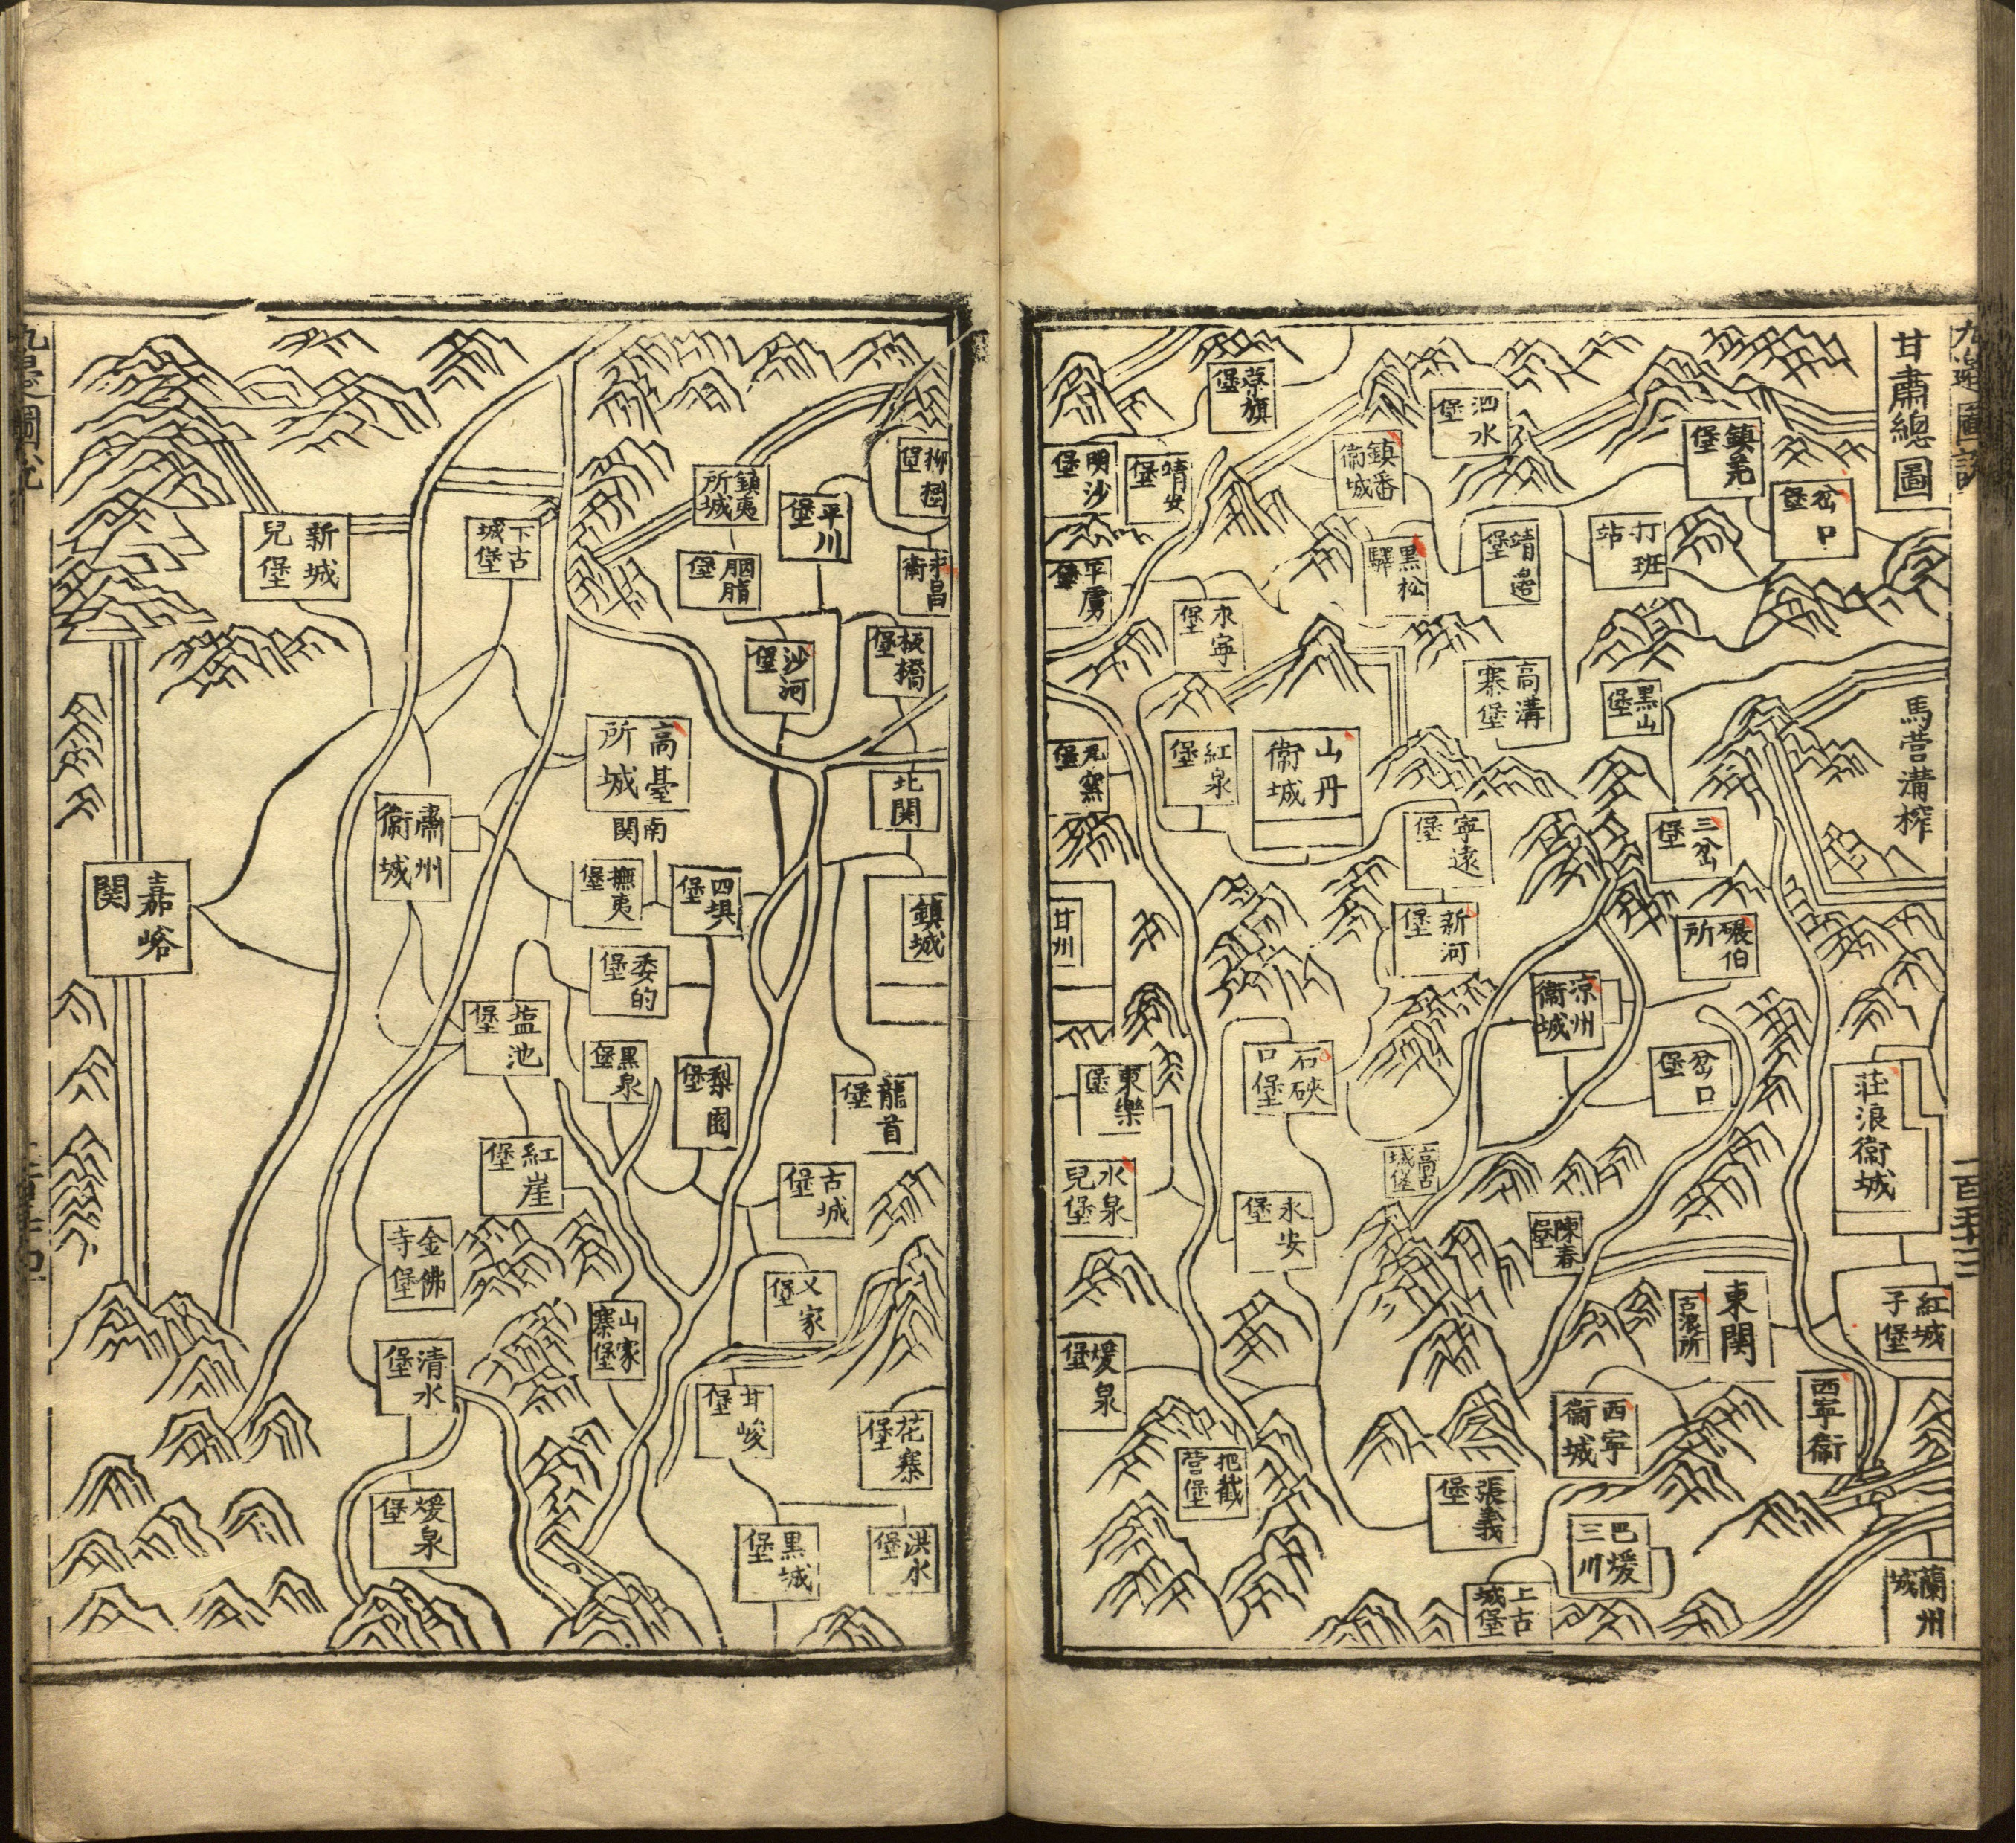 甘肅總圖
九邊圖說
鎮羌堡
岔口堡
馬營溝榨
莊浪衛城
紅城子堡
西寧衛
蘭州城
打班站
黑山堡
三岔堡
碾伯所
岔口堡
東関
古浪所
陳春堡
西寧衛城
巴煖三川
泗水堡
靖邊堡
高溝寨堡
涼州衛城
張義堡
上古城堡
鎮番衛城
黑松驛
寧遠堡
新河堡
高古城堡
蔡旗堡
永寧堡
山丹衛城
紅泉堡
石硤口堡
永安堡
把截營堡
靖安堡
明沙堡
平虜堡
瓦窯堡
甘州
東樂堡
水泉兒堡
煖泉堡
柳樹堡
永昌衛
板橋堡
北関
鎮城
龍首堡
花寨堡
洪水堡
平川堡
沙河堡
古城堡
乂家堡
甘峻堡
黑城堡
鎮夷所城
胭脂堡
四垻堡
梨園堡
高臺所城
南関
撫夷堡
委的堡
黑泉堡
山家寨堡
下古城堡
塩池堡
紅崖堡
肅州衛城
金佛寺堡
清水堡
煖泉堡
新城兒堡
嘉峪関